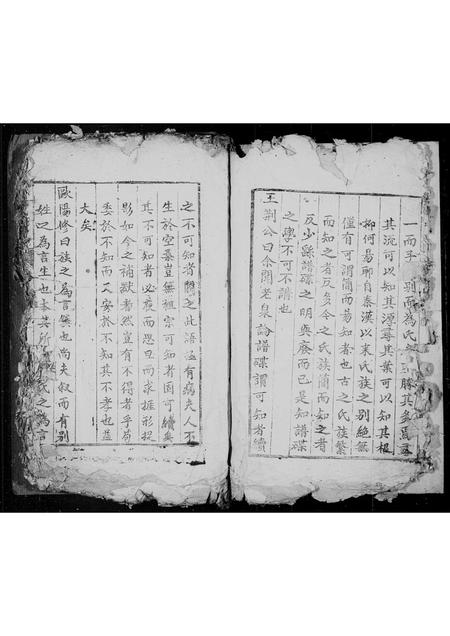 一而子 別而為氏 勝其多焉
其流可以知其源尋其葉可以知其根
柳何易耶自秦漢以來氏族之別絕無
僅有可謂簡而易知者也古之氏族繁
而知之者反多今之氏族簡而知之者
反少繇譜碟之明與廢而已是知譜碟
之學不可不講也
王荊公曰余聞老泉論譜碟謂可知者續
之不可知者闕之此語極有病夫人不
生於空桑豈無祖宗可知者固可續與
其不可知者必疲而思旦而求推形捉
影如今之補獄者然豈有不得者乎苟
委於不知而又安於不知其不孝也益
大矣
歐陽修曰族之為言簇也尚夫叙而有別
姓之為言生也本其所 氏之為言